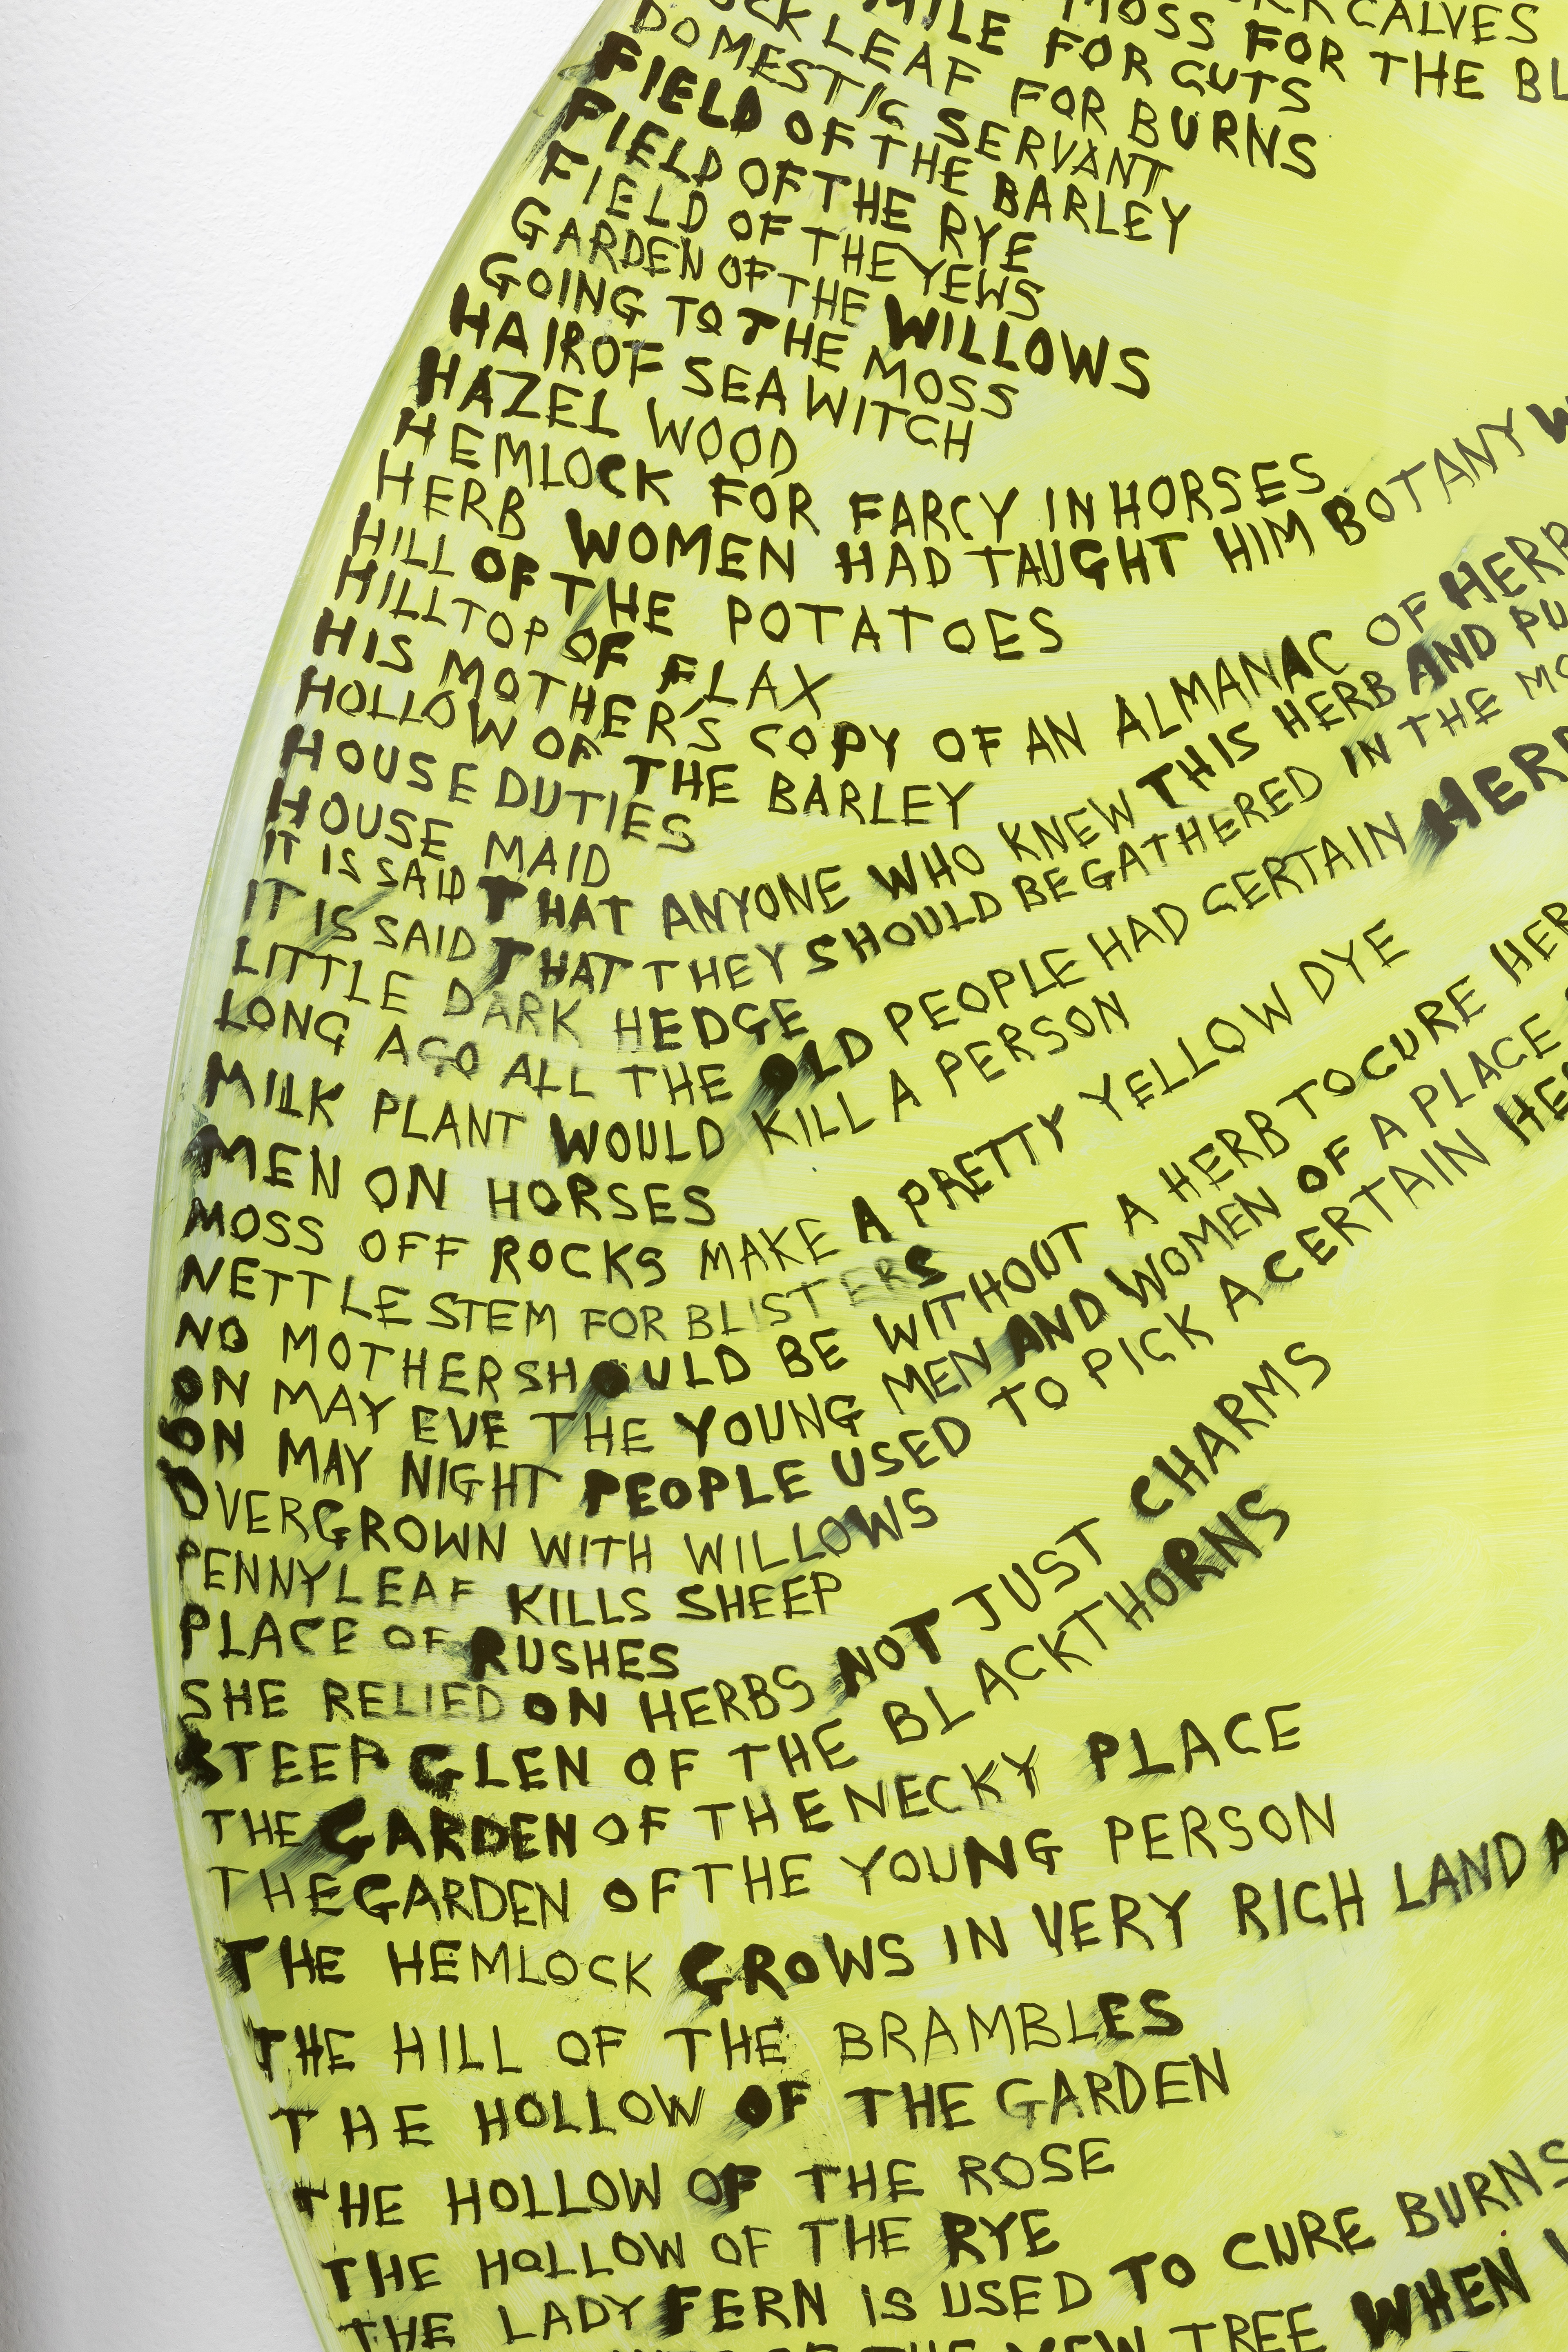 CALVES
MOSS FOR THE
MILE FOR CUTS
LEAF FOR BURNS
DOMESTIC SERVANT
FIELD OF THE BARLEY
FIELD OF THE RYE
FIELD OF THE YEWS
GARDEN OF THE WILLOWS
GOING TO THE MOSS
HAIR OF SEA WITCH
HAZEL WOOD
HEMLOCK FOR FARCY IN HORSES
HERB WOMEN HAD TAUGHT HIM BOTANY
HILL OF THE POTATOES
HILLTOP OF FLAX
HIS MOTHER'S COPY OF AN ALMANAC OF
HOLLOW OF THE BARLEY
HOUSE DUTIES
HOUSE MAID
IT IS SAID THAT ANYONE WHO KNEW THIS HERB AND
IT IS SAID THAT THEY SHOULD BE GATHERED IN THE
LITTLE DARK HEDGE
LONG AGO ALL THE OLD PEOPLE HAD CERTAIN
MILK PLANT WOULD KILL A PERSON
MEN ON HORSES
MOSS OFF ROCKS MAKE A PRETTY YELLOW DYE
NETTLE STEM FOR BLISTERS
NO MOTHER SHOULD BE WITHOUT A HERB TO CURE HER
ON MAY EVE THE YOUNG MEN AND WOMEN OF A PLACE
ON MAY NIGHT PEOPLE USED TO PICK A CERTAIN
OVERGROWN WITH WILLOWS
PENNYLEAF KILLS SHEEP
PLACE OF RUSHES
SHE RELIED ON HERBS NOT JUST CHARMS
STEEP GLEN OF THE BLACKTHORNS
THE GARDEN OF THE NECKY PLACE
THE GARDEN OF THE YOUNG PERSON
THE HEMLOCK GROWS IN VERY RICH LAND
THE HILL OF THE BRAMBLES
THE HOLLOW OF THE GARDEN
THE HOLLOW OF THE ROSE
THE HOLLOW OF THE RYE
THE LADY FERN IS USED TO CURE BURNS
OF THE YEW TREE WHEN